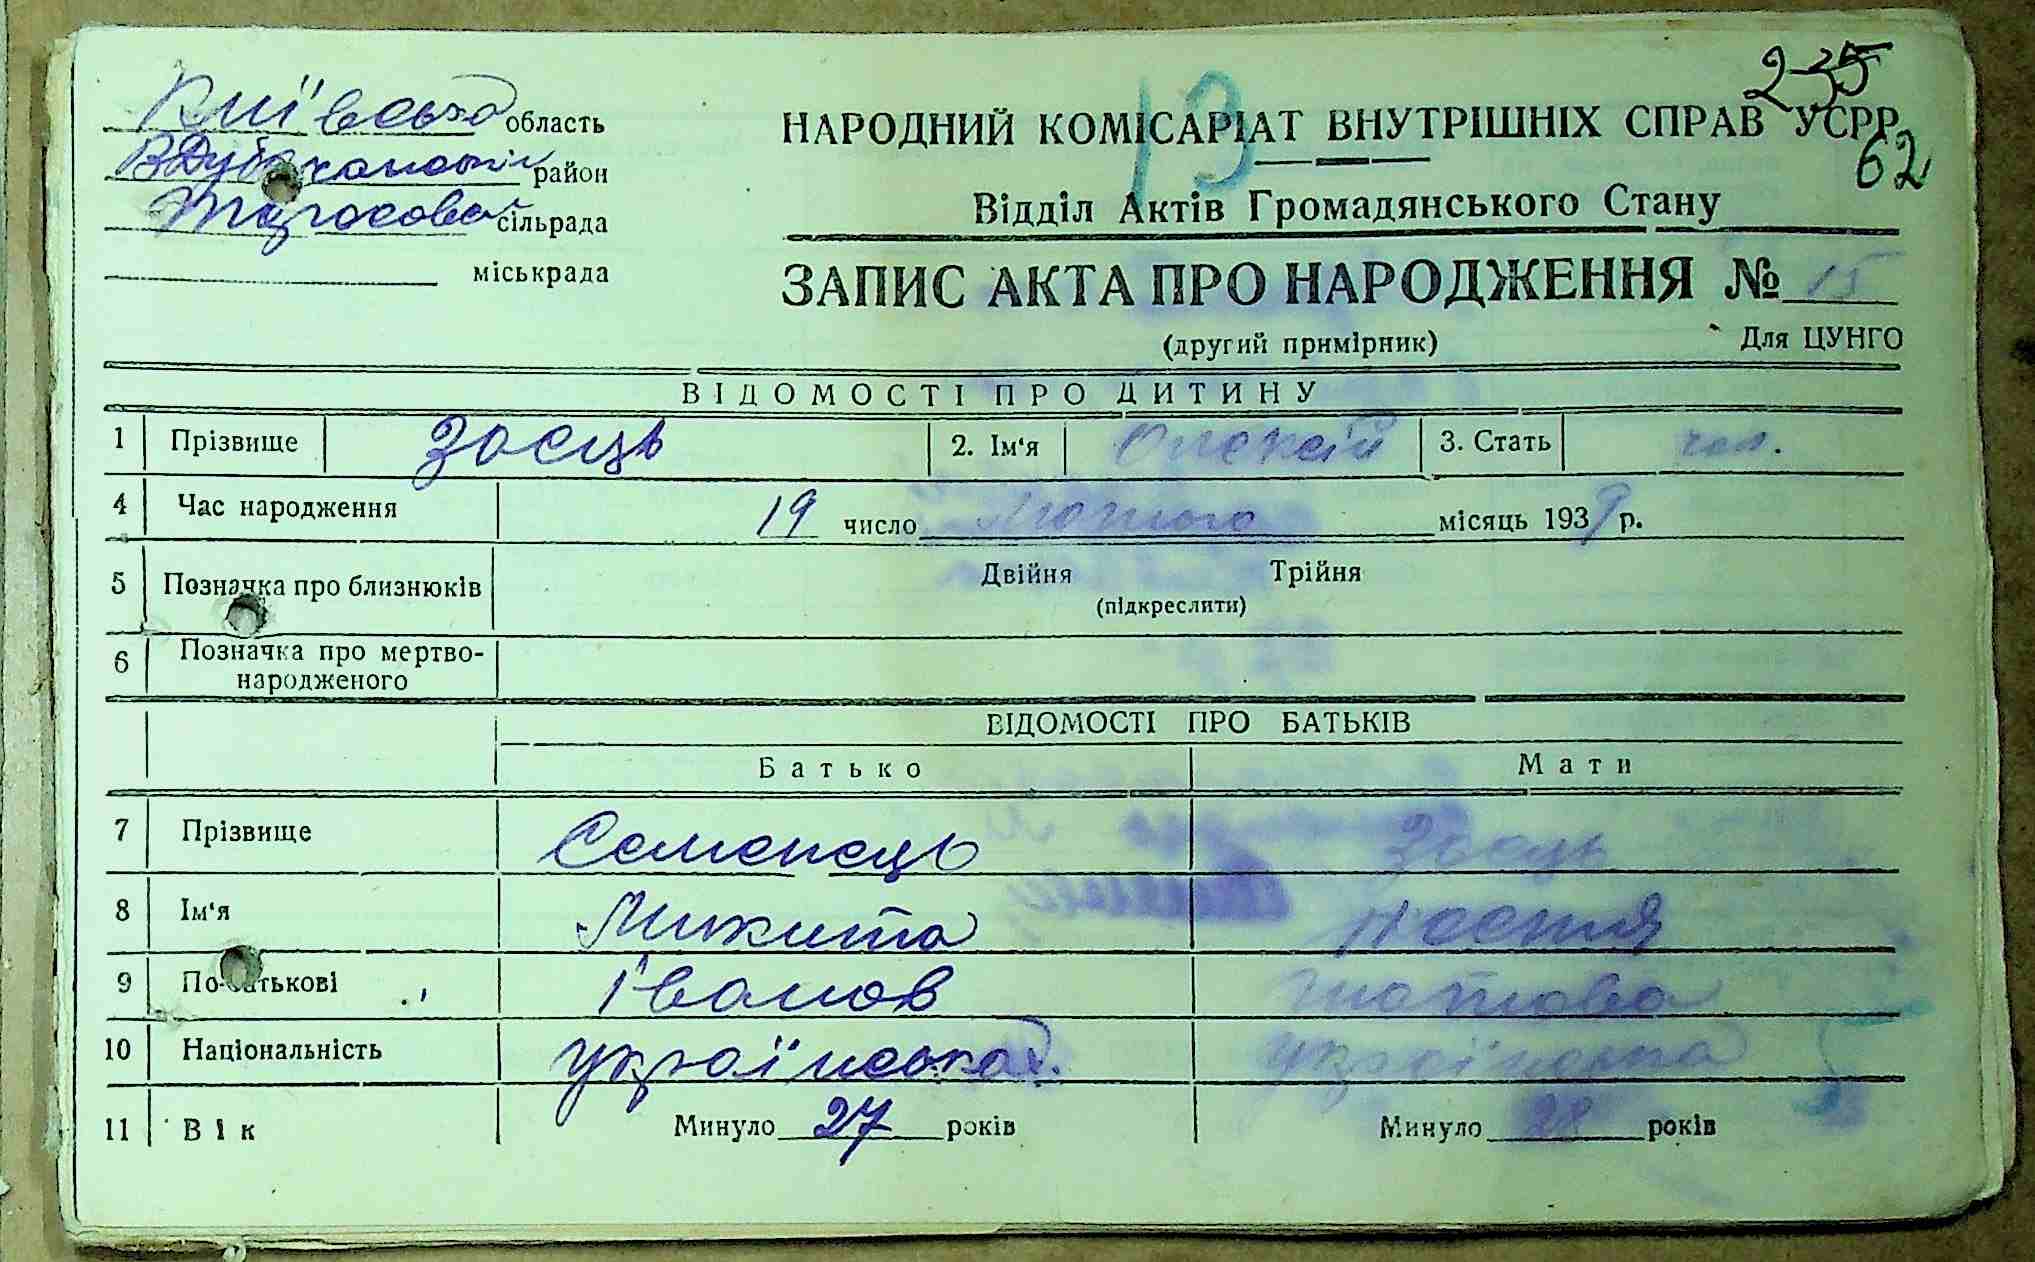 235
13
Київська область
НАРОДНИЙ КОМІСАРІАТ ВНУТРІШНІХ СПРАВ УСРР
62
район
Відділ Актів Громадянського Стану
сільрада
міськрада
ЗАПИС АКТА ПРО НАРОДЖЕННЯ № 15
(другий примірник) Для ЦУНГО
ВІДОМОСТІ ПРО ДИТИНУ
1 Прізвище Заєць 2. Ім'я Олексій 3. Стать чол.
4 Час народження 19 число Лютого місяць 1939 р.
5 Позначка про близнюків Двійня Трійня
(підкреслити)
6 Позначка про мертво-
народженого
ВІДОМОСТІ ПРО БАТЬКІВ
Батько Мати
7 Прізвище Семенець Заєць
8 Ім'я Микита Настя
9 По-батькові Іванов
10 Національність українська українська
11 Вік Минуло 27 років Минуло 28 років